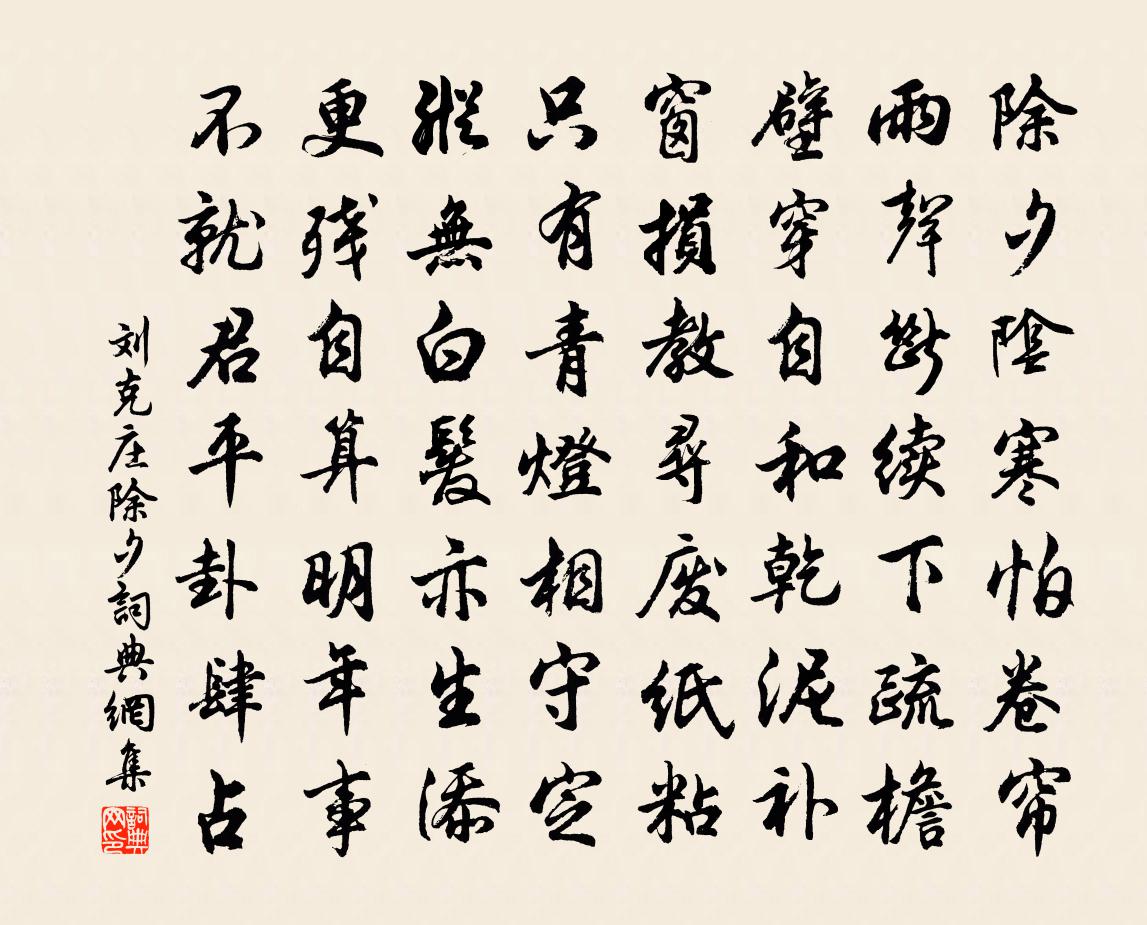 除夕陰寒怕卷帘
雨聲斷续下疏檐
壁穿自和乾泥补
窗損教尋废纸粘
只有青燈相守定
縱無白髮亦生添
更残自算明年事
不就君平卦肆占
刘克庄除夕詞典網集
詞典網印